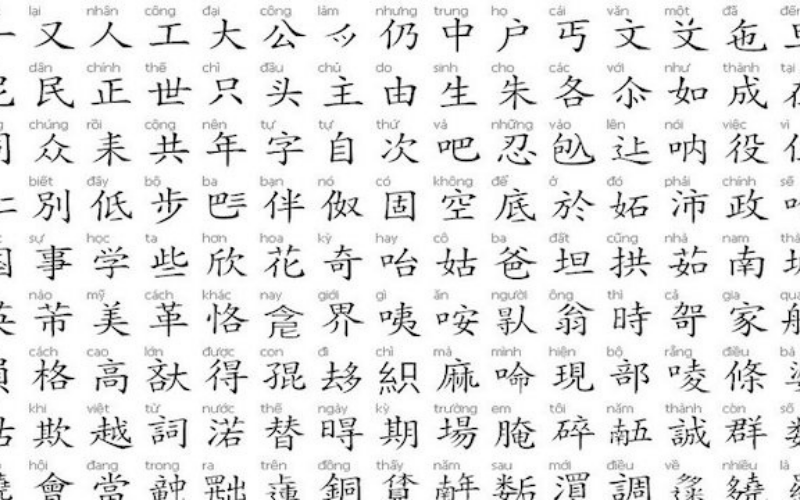 lại nhân công đại công làm nhưng trung họ cái văn một đã đến
又 人 工 大 公 仍 中 户 丐 文
dân chính thế chỉ đầu chủ do sinh cho các với như thành tại
民 正 世 只 头 主 由 生 朱 各 尒 如 成
chúng rồi cộng nên tự tự thứ và những vào lên nói việc vì
众 耒 共 年 字 自 次 吧 忍 𠓨 𨑗 呐 役
biết đấy bộ ba bạn nó có không để ở đó phải chính sẽ
別 低 步 𠀧 伴 伮 固 空 底 於 妬 沛 政
sự học ta hơn hoa kỳ hay cô ba đất cũng nhà nam
事 学 些 欣 花 奇 咍 姑 爸 坦 拱 茹 南
não mỹ cách khác nay giới gì ăn người ông thì cả gia
芾 美 革 恪 界 咦 咹 㝵 翁 時 哿 家
cách cao lớn được con đi chỉ mà mình hiện bộ rằng điều bà
格 高 得 𡥵 𠫾 織 麻 命 現 部 㖫 條 婆
khi việt từ nước thế ngày kỳ trường em tôi năm thành còn số
欺 越 詞 渃 替 𣈜 期 場 腌 碎 𠄼 誠 群 数
hội đang trong ra trên đồng thấy năm sau mới điều về nhiều là
會 當 𥪝 𠚢 𨕭 銅 𢆥 𡢐 調